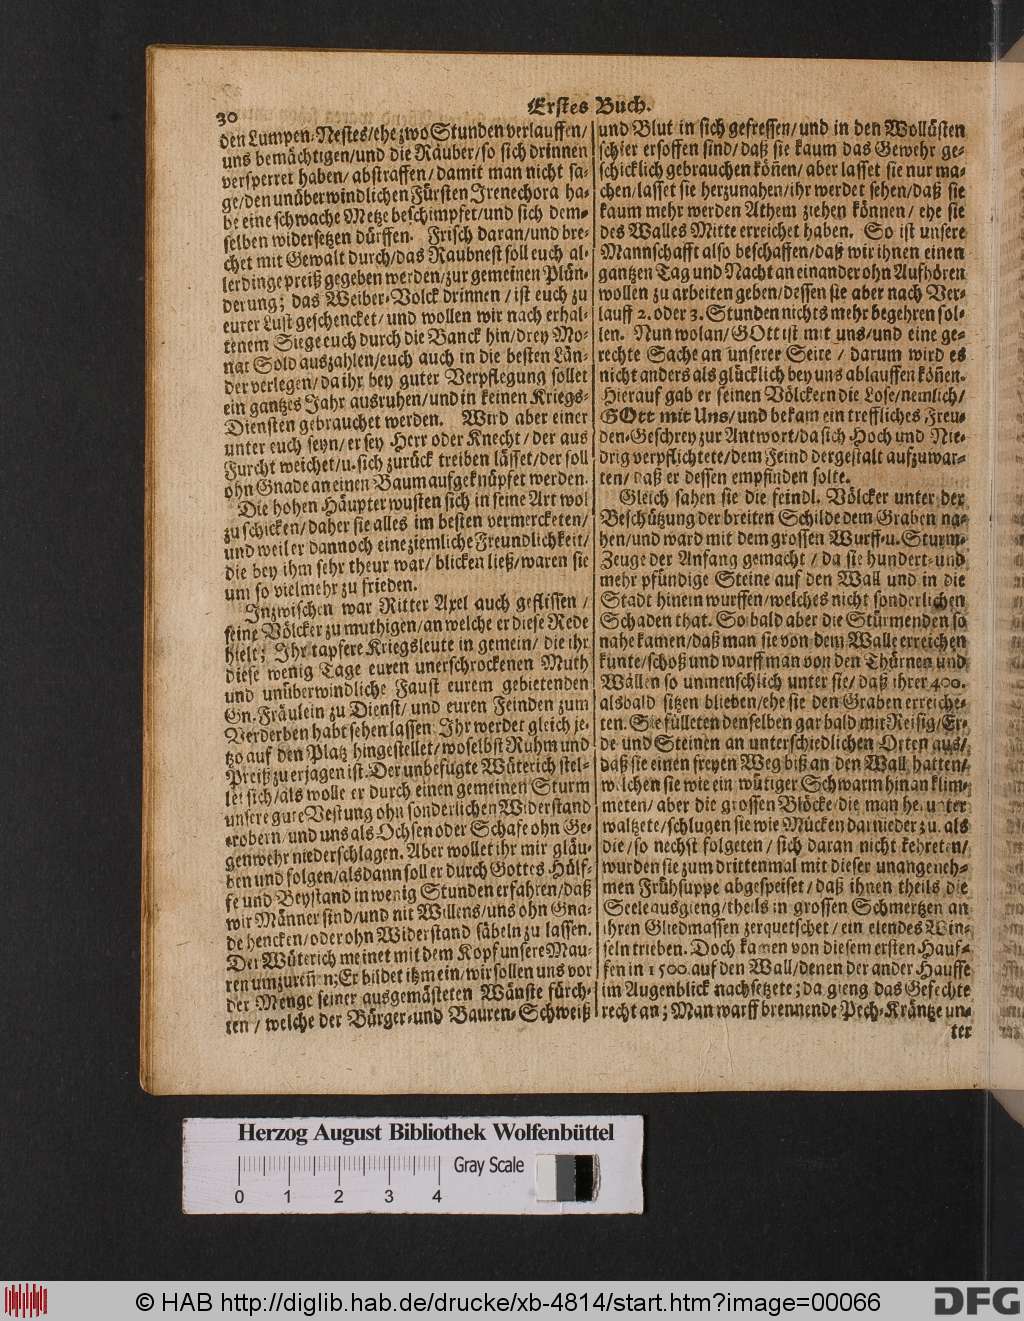 30
Erstes Buch.
den Lumpen-Nestes/ehe zwo Stunden verlauffen/
uns bemächtigen/und die Räuber/so sich drinnen
versperret haben/abstraffen/damit man nicht sa-
ge/den unüberwindlichen Fürsten Irenechora ha-
be eine schwache Metze beschimpfet/und sich dem-
selben widersetzen dürffen. Frisch daran/und bre-
chet mit Gewalt durch/das Raubnest soll euch al-
lerdinge preiß gegeben werden/zur gemeinen Plün-
derung; das Weiber-Volck drinnen/ist euch zu
eurer Lust geschencket/und wollen wir nach erhal-
tenem Siege euch durch die Banck hin/drey Mo-
nat Sold auszahlen/euch auch in die besten Län-
der verlegen/da ihr bey guter Verpflegung sollet
ein gantzes Jahr ausruhen/und in keinen Kriegs-
Diensten gebrauchet werden. Wird aber einer
unter euch seyn/er sey Herr oder Knecht/der aus
Furcht weichet/u. sich zurück treiben lässet/der soll
ohn Gnade an einen Baum aufgeknüpfet werden.
Die hohen Häupter wusten sich in seine Art wol
zu schicken/daher sie alles im besten vermercketen/
und weil er dannoch eine ziemliche Freundlichkeit/
die bey ihm sehr theur war/blicken ließ/waren sie
um so vielmehr zu frieden.
Inzwischen war Ritter Axel auch geflissen/
seine Völcker zu muthigen/an welche er diese Rede
hielt; Ihr tapfere Kriegsleute in gemein/die ihr
diese wenig Tage euren unerschrockenen Muth
und unüberwindliche Faust eurem gebietenden
Gn. Fräulein zu Dienst/und euren Feinden zum
Verderben habt sehen lassen. Ihr werdet gleich je-
tzo auf den Platz hingestellet/woselbst Ruhm und
Preiß zu erjagen ist. Der unbefugte Wüterich stel-
let sich/als wolle er durch einen gemeinen Sturm
unsere gute Vestung ohn sonderlichen Widerstand
erobern/und uns als Ochsen oder Schafe ohn Ge-
genwehr niederschlagen. Aber wollet ihr mir gläu-
ben und folgen/alsdann soll er durch Gottes Hülf-
fe und Beystand in wenig Stunden erfahren/daß
wir Männer sind/und nit Willens/uns ohn Gna-
de hencken/oder ohn Widerstand säbeln zu lassen.
Der Wüterich meinet mit dem Kopf unsere Mau-
ren umzurennen; Er bildet itzm ein/wir sollen uns vor
der Menge seiner ausgemästeten Wänste fürch-
ten/welche der Bürger-und Bauren-Schweiß
und Blut in sich gefressen/und in den Wollüsten
schier ersoffen sind/daß sie kaum das Gewehr ge-
schicklich gebrauchen köñen/aber lasset sie nur ma-
chen/lasset sie herzunahen/ihr werdet sehen/daß sie
kaum mehr werden Athem ziehen können/ehe sie
des Walles Mitte erreichet haben. So ist unsere
Mannschafft also beschaffen/daß wir ihnen einen
gantzen Tag und Nacht an einander ohn Aufhören
wollen zu arbeiten geben/dessen sie aber nach Ver-
lauff 2. oder 3. Stunden nichts mehr begehren sol-
len. Nun wolan/GOtt ist mit uns/und eine ge-
rechte Sache an unserer Seite/darum wird es
nicht anders als glücklich bey uns ablauffen köñen.
Hierauf gab er seinen Völckern die Lose/nemlich/
GOtt mit Uns/und bekam ein treffliches Freu-
den-Geschrey zur Antwort/da sich Hoch und Nie-
drig verpflichtete/dem Feind dergestalt aufzuwar-
ten/daß er dessen empfinden solte.
Gleich sahen sie die feindl. Völcker unter der
Beschützung der breiten Schilde dem Graben na-
hen/und ward mit dem grossen Wurff-u. Sturm-
Zeuge der Anfang gemacht/da sie hundert-und
mehr pfündige Steine auf den Wall und in die
Stadt hinein wurffen/welches nicht sonderlichen
Schaden that. So bald aber die Stürmenden so
nahe kamen/daß man sie von dem Walle erreichen
kunte/schoß und warff man von den Thürnen und
Wällen so unmenschlich unter sie/daß ihrer 400.
alsbald sitzen blieben/ehe sie den Graben erreiche-
ten. Sie fülleten denselben gar bald mit Reisig/Er-
de und Steinen an unterschiedlichen Orten aus/
daß sie einen freyen Weg biß an den Wall hatten/
welchen sie wie ein wütiger Schwarm hinan klim-
meten/aber die grossen Blöcke/die man herunter
waltzete/schlugen sie wie Mücken darnieder zu. als
die/so nechst folgeten/sich daran nicht kehreten/
wurden sie zum drittenmal mit dieser unangeneh-
men Frühsuppe abgespeiset/daß ihnen theils die
Seele ausgieng/theils in grossen Schmertzen an
ihren Gliedmassen zerquetschet/ein elendes Win-
seln trieben. Doch kamen von diesem ersten Hauf-
fen in 1500. auf den Wall/denen der ander Hauffe
im Augenblick nachsetzete; da gieng das Gefechte
recht an; Man warff brennende Pech-Kräntze un-
ter
Herzog August Bibliothek Wolfenbüttel
Gray Scale
0 1 2 3 4
© HAB http://diglib.hab.de/drucke/xb-4814/start.htm?image=00066
DFG